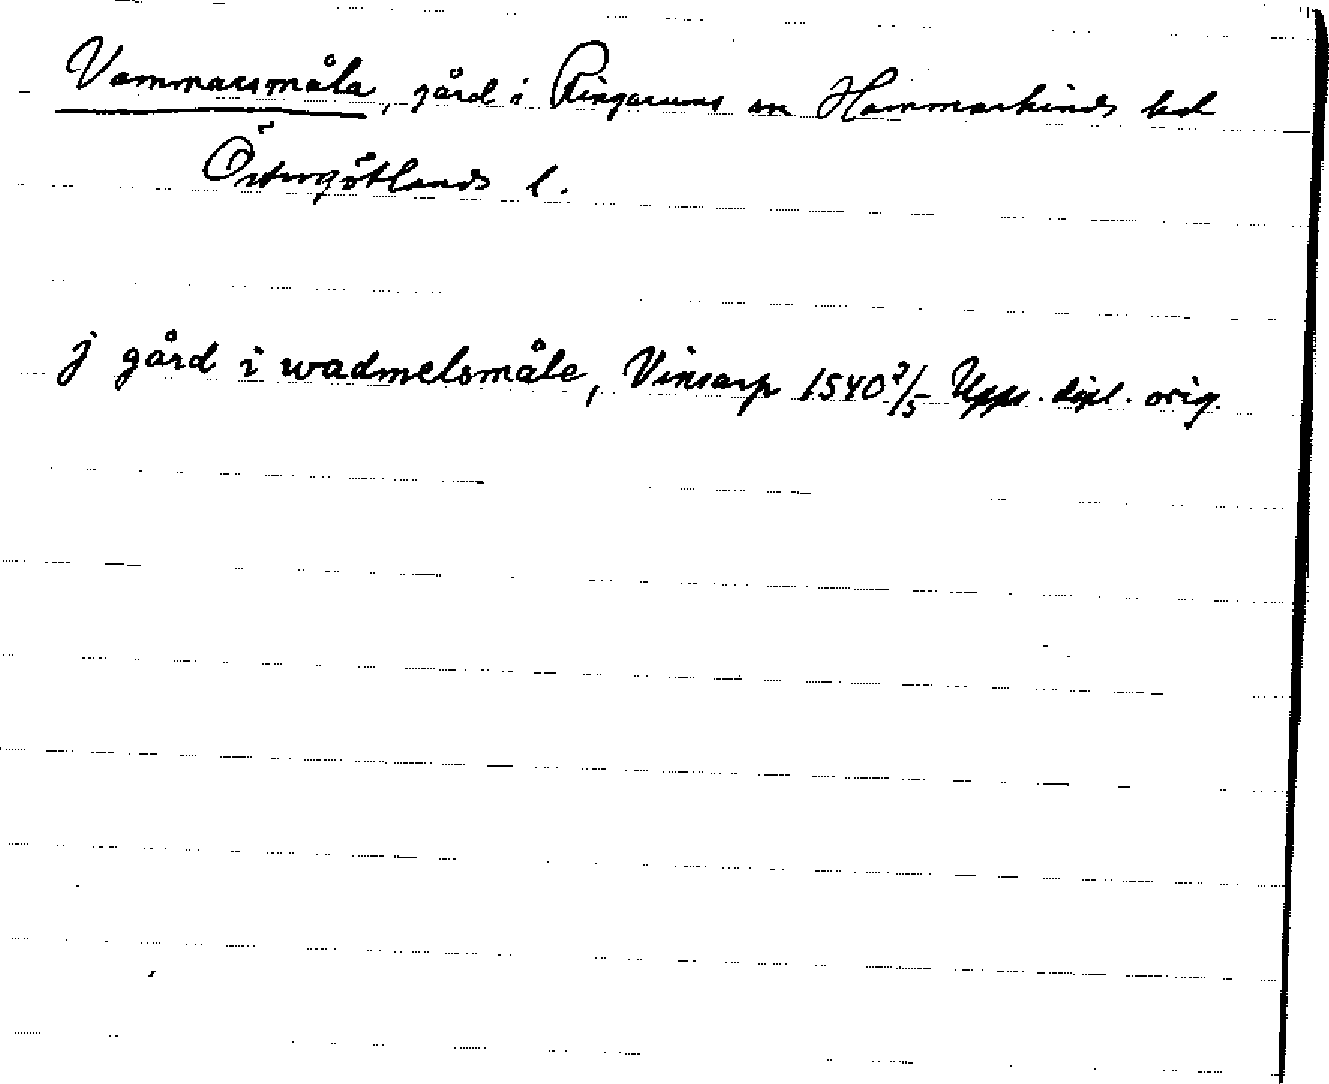 Vammarsmåla, gård i Ringarums sn Hammarkinds hd
Östergötlands l.
j gård i wadmelsmåle, Vinsarp 1540 2/5 Upps. dipl. orig.